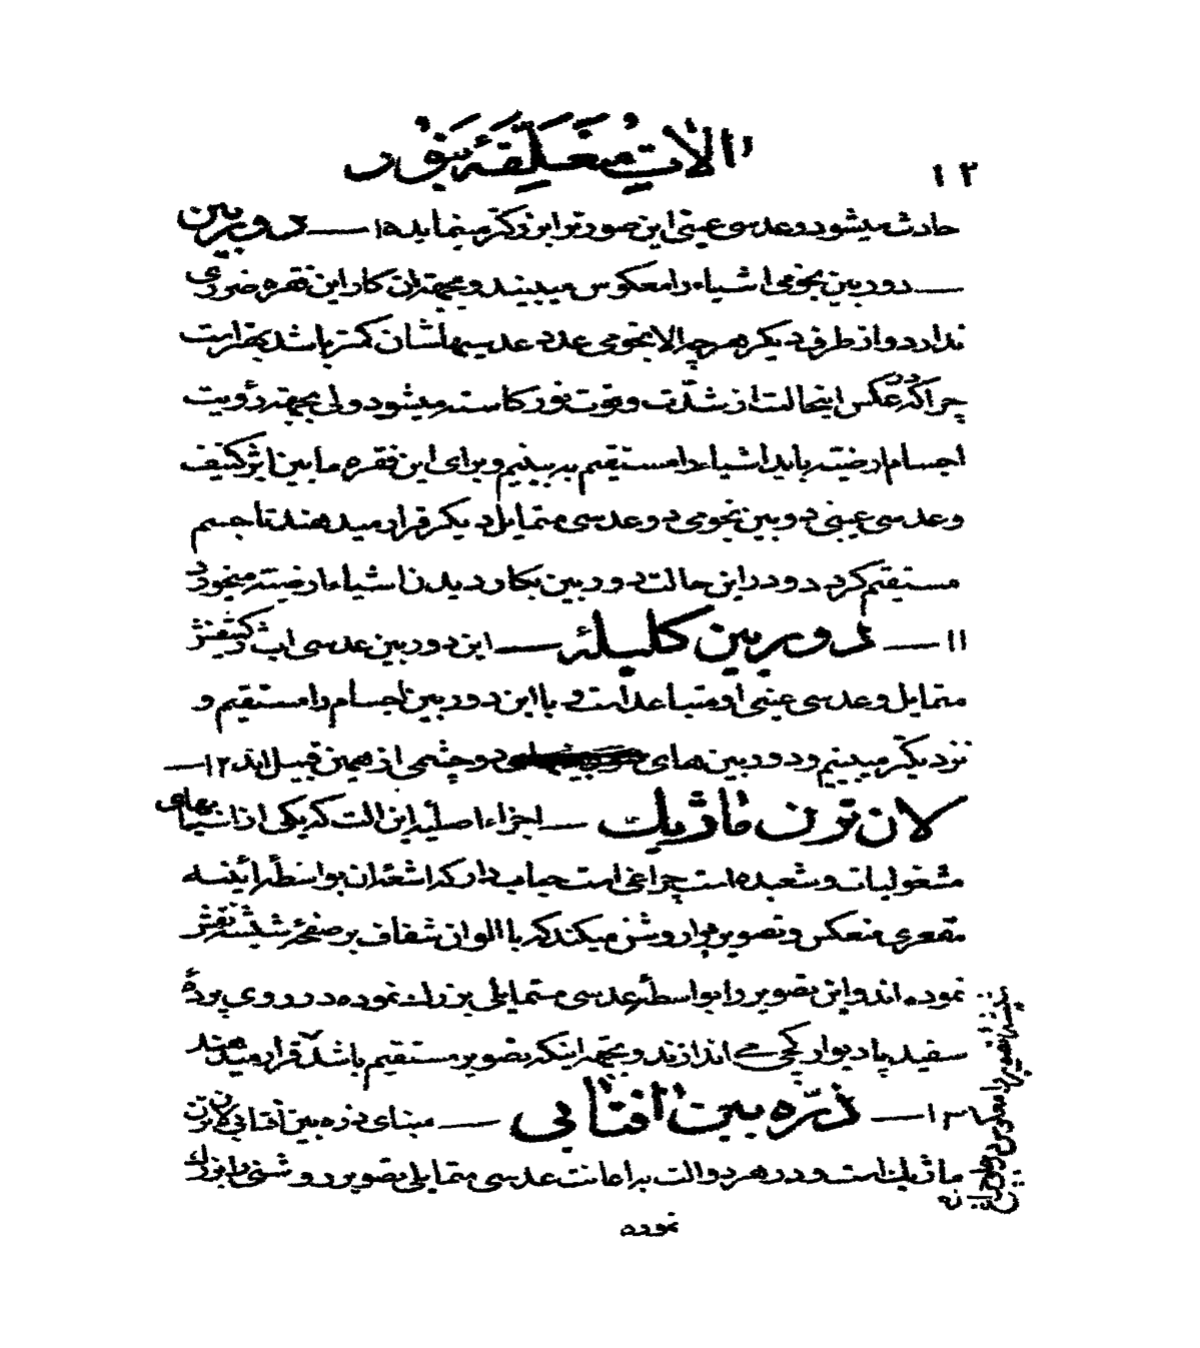 الات متعلقهٔ بنور
۱۳
حادث میشود و عدسی عینی این صورت را بزرگتر مینماید ۱۰ — دوربین
— دوربین نجومی اشیاء را معکوس میبینند و بجهة ان کار این فقره ضرری
ندارد و از طرف دیکر هر چه الات نجومی عدد عدسیهاشان کمتر باشد بهتر است
چرا که در عکس اینحالت از شدّت و قوت نور کاسته میشود ولی بجهة رؤیت
اجسام ارضیّه باید اشیاء را مستقیم به بینیم و برای این فقره ما بین ابژکتیف
و عدسی عینی دوبین نجومی دو عدسی متمایل دیکر قرار میدهند تا جسم
مستقیم کردد و در این حالت دوربین بکار دیدن اشیاء ارضیّه میخورد
۱۱ — دوربین کلیله — این دوربین عدسی ابژکتیفش
متمایل و عدسی عینی او متباعد است و با این دوربین اجسام را مستقیم و
نزدیکتر میبینیم و دوربین های دو چشمی از همین قبیل اند ۱۲ —
لان ترن ماژیک — اجزاء اصلیه این الت که یکی از اسبابهای
مشغولیات و شعبده است چراغی است حبابدار که اشعهٔ ان بواسطهٔ ائینه
مقعری منعکس و تصویر را روشن میکند که با الوان شفاف بر صفحهٔ شیشه نقش
نموده اند و این تصویر را بواسطهٔ عدسی متمایلی بزرك نموده در روی پردهٔ
سفید یا دیوار کچی می اندازند و بجهة اینکه تصویر مستقیم باشد قرار میدهند
۱۳ — ذرّه بین افتابی — مبنای ذره بین افتابی لان ترن
ماژیك است و در هر دو الت باعانت عدسی متمایلی تصویر روشنی را بزرك
نموده